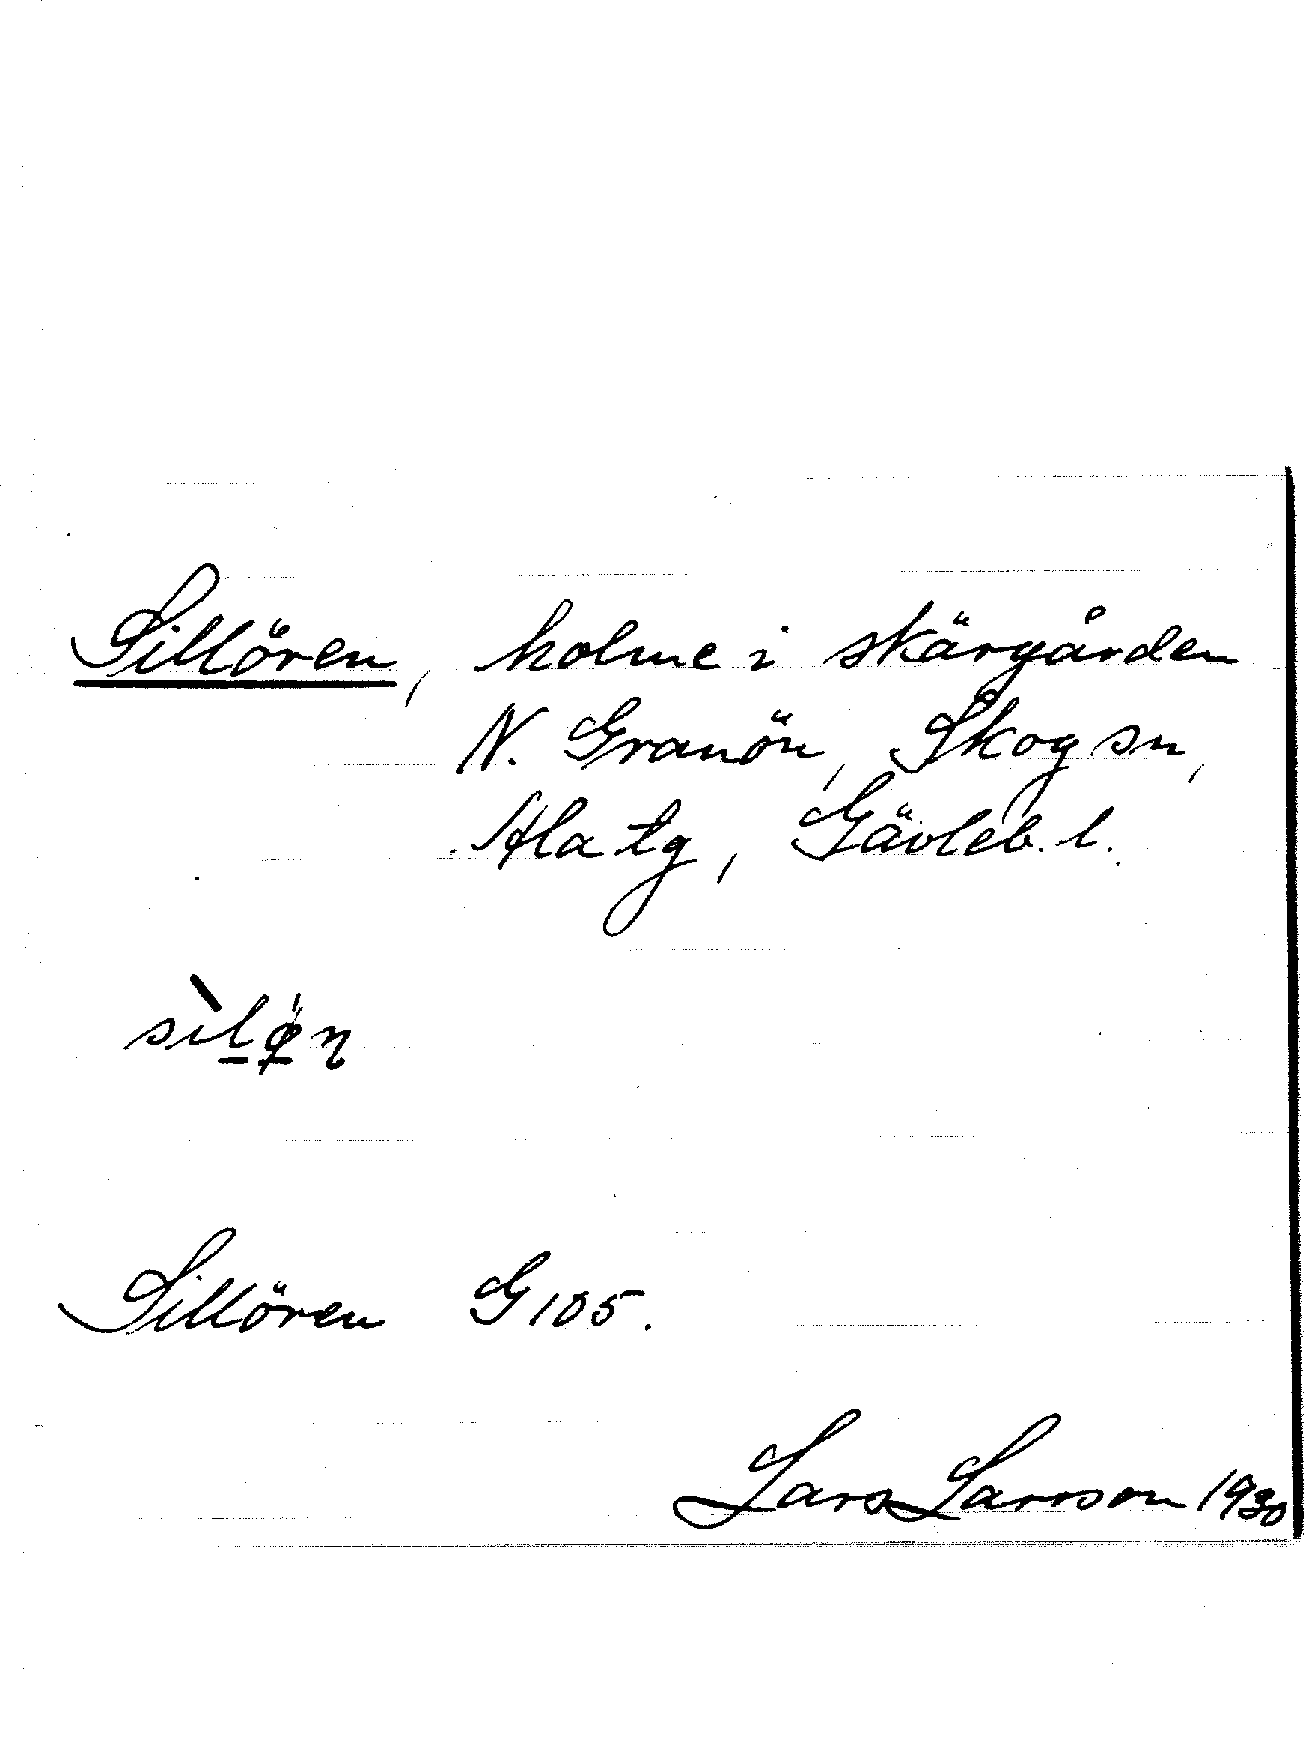 Sillören, holme i skärgården
N. Granön, Skog sn,
Ala tg, Gävleb. l.
sìløn
Sillören G 105.
Lars Larsson 1930